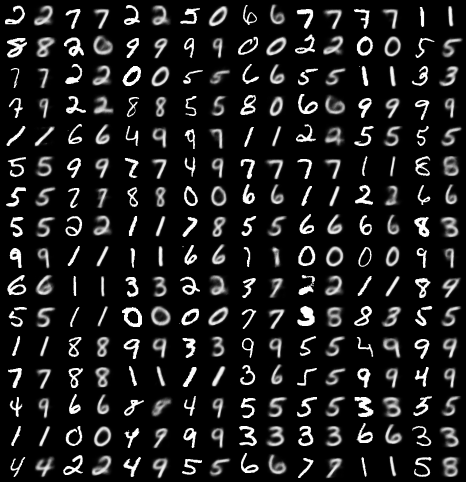 2 2 7 7 2 2 5 0 6 6 7 7 7 7 1 1
8 8 2 0 9 9 9 9 0 0 2 2 0 0 5 5
7 7 2 2 0 0 5 5 6 6 5 5 1 1 3 3
7 9 2 2 8 8 5 5 8 0 6 6 9 9 9 9
1 1 6 6 4 9 9 7 1 1 2 2 5 5 5 5
5 5 9 9 7 7 4 9 7 7 7 7 1 1 8 8
5 5 7 7 8 8 0 0 6 6 1 1 2 2 6 6
5 5 2 2 1 1 7 8 5 5 6 6 6 6 8 3
9 9 1 1 1 1 6 6 7 1 0 0 0 0 9 9
6 6 1 1 3 3 2 2 3 7 2 2 1 1 8 9
5 5 1 1 0 0 0 0 7 7 3 8 8 3 5 5
1 1 8 8 9 9 3 3 9 9 5 5 4 9 9 9
7 7 8 8 1 1 1 1 3 6 5 5 9 9 4 9
4 9 6 6 8 8 4 9 5 5 5 5 3 3 5 5
1 1 0 0 4 9 9 9 3 3 3 3 6 6 3 3
4 4 2 2 4 9 5 5 6 6 7 7 1 1 5 8